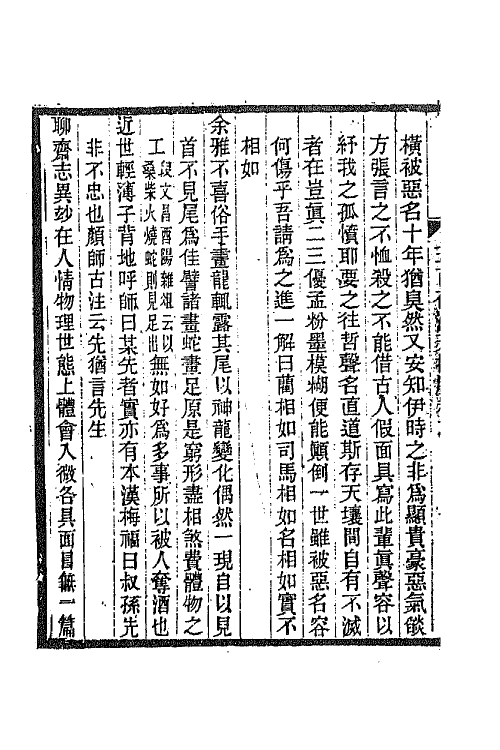 橫被惡名十年猶臭然又安知伊時之非爲顯貴豪惡氣燄
方張言之不恤殺之不能借古人假面具寫此輩眞聲容以
紓我之孤憤耶要之往哲聲名直道斯存天壤間自有不滅
者在豈眞二三優孟粉墨模糊便能顚倒一世雖被惡名容
何傷乎吾請爲之進一解曰藺相如司馬相如名相如實不
相如
余雅不喜俗手畫龍輒露其尾以神龍變化偶然一現自以見
首不見尾爲佳譬諸畫蛇畫足原是窮形盡相煞費體物之
工段文昌酉陽雜俎云以桑柴火燒蛇則見足出無如好爲多事所以被人奪酒也
近世輕薄子背地呼師曰某先者實亦有本漢梅福曰叔孫先
非不忠也顏師古注云先猶言先生
聊齋志異妙在人情物理世態上體會入微各具面目無一篇